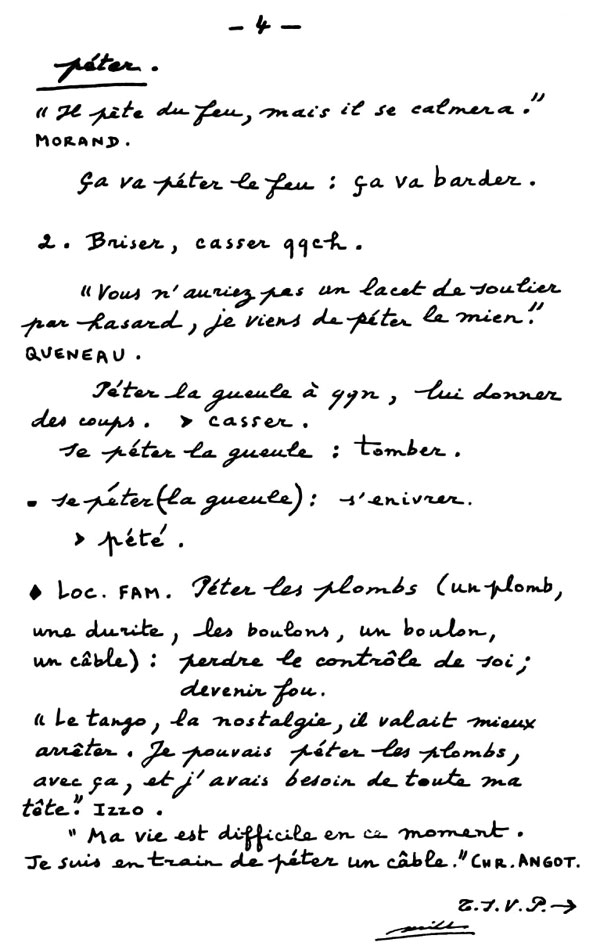 - 4 -
péter.
"Il pète du feu, mais il se calmera."
MORAND.
Ça va péter le feu : ça va barder.
2. Briser, casser qqch.
"Vous n'auriez pas un lacet de soulier
par hasard, je viens de péter le mien."
QUENEAU.
Péter la gueule à qqn, lui donner
des coups. > casser.
se péter la gueule : tomber.
- se péter (la gueule) : s'enivrer.
> pété.
♦ Loc. FAM. Péter les plombs (un plomb,
une durite, les boulons, un boulon,
un câble) : perdre le contrôle de soi ;
devenir fou.
"Le tango, la nostalgie, il valait mieux
arrêter. Je pouvais péter les plombs,
avec ça, et j'avais besoin de toute ma
tête." IZZO.
"Ma vie est difficile en ce moment.
Je suis en train de péter un câble." CHR. ANGOT.
T.S.V.P. →